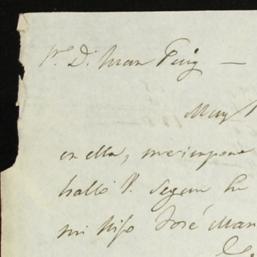 Sr. Dn. Juan Puig —
Muy
en ella, me impone
halló V. Segun he
mi hijo José Man